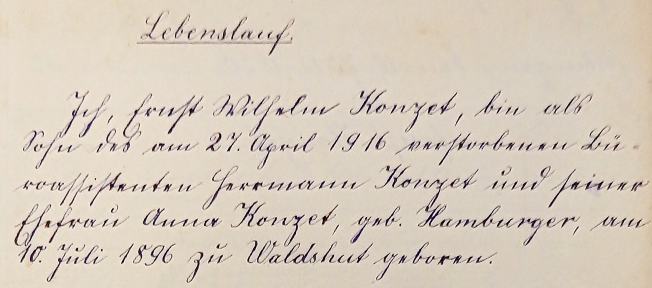 Lebenslauf.
Ich, Ernst Wilhelm Konzet, bin als
Sohn des am 27. April 1916 verstorbenen Bü-
roassistenten Herrmann Konzet und seiner
Ehefrau Anna Konzet, geb. Hamburger, am
10. Juli 1896 zu Waldshut geboren.